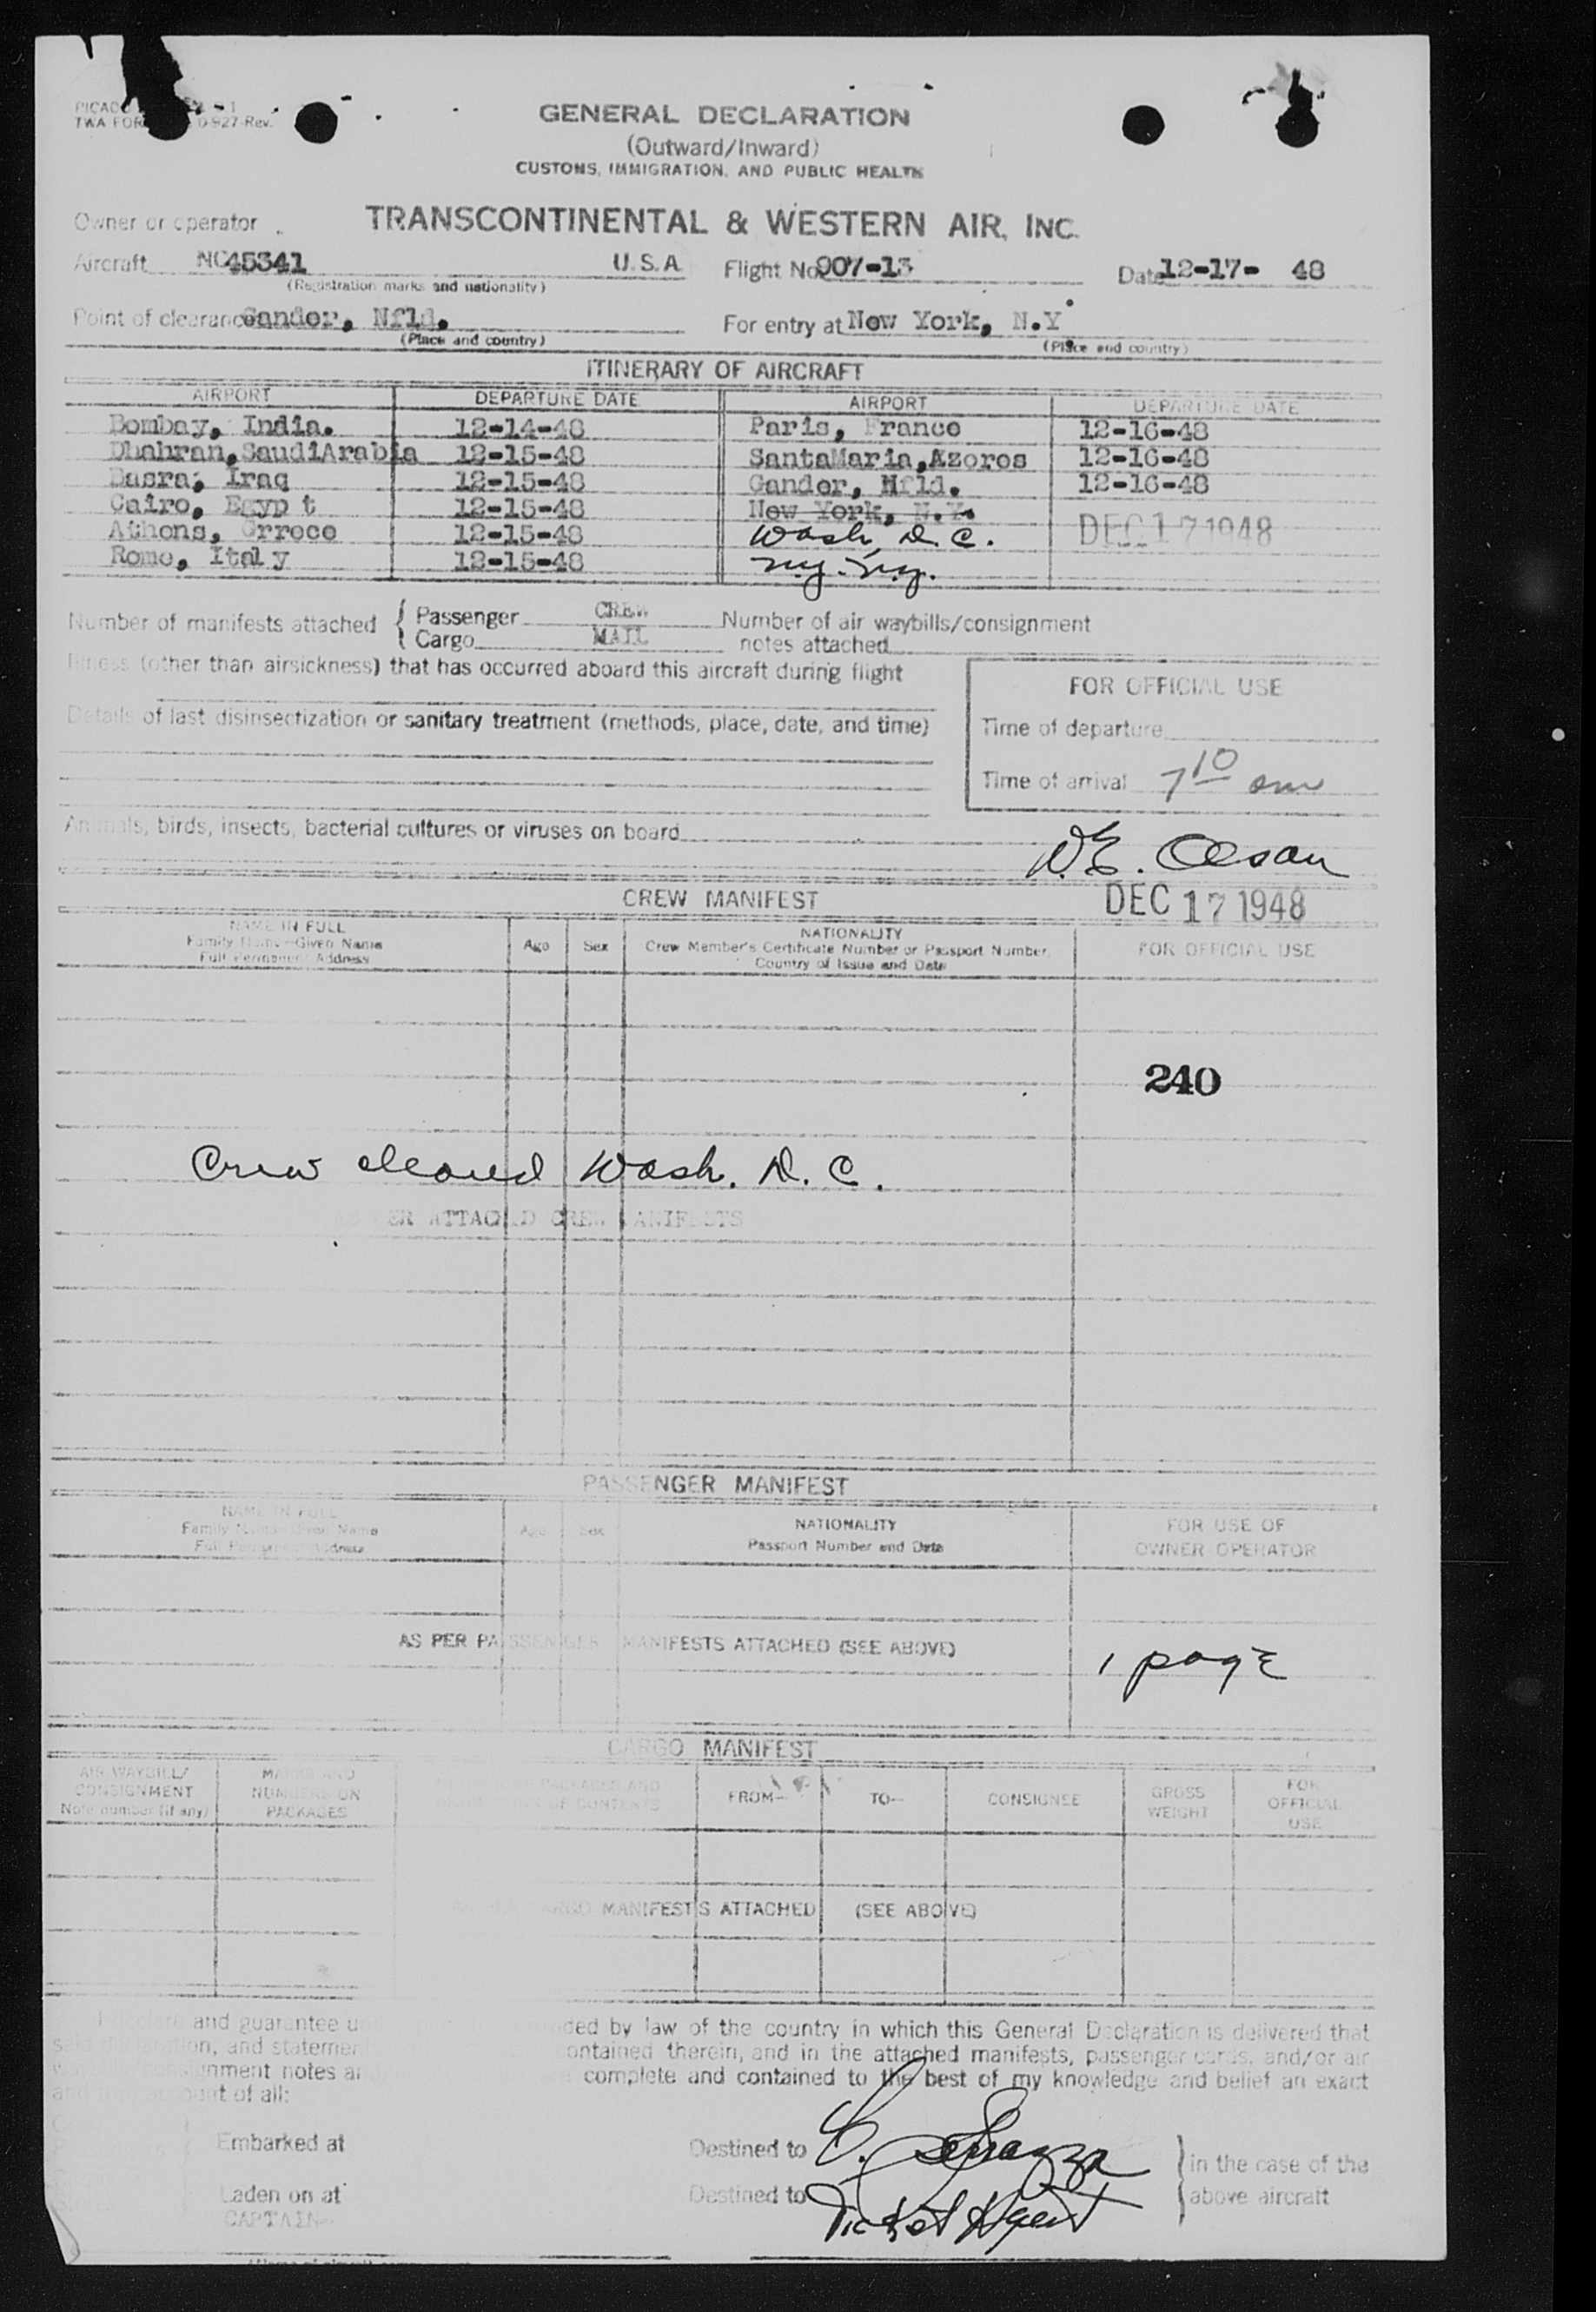 TWA FOR 0-927-Rev.
GENERAL DECLARATION
(Outward/Inward)
CUSTOMS, IMMIGRATION, AND PUBLIC HEALTH
Owner or operator TRANSCONTINENTAL & WESTERN AIR, INC.
Aircraft NC45341 U.S.A Flight No. 907-13 Date 12-17- 48
(Registration marks and nationality)
Point of clearance Gander, Nfld. For entry at New York, N.Y.
(Place and country) (Place and country)
ITINERARY OF AIRCRAFT
AIRPORT DEPARTURE DATE AIRPORT DEPARTURE DATE
Bombay, India. 12-14-48 Paris, France 12-16-48
Dhahran, SaudiArabia 12-15-48 SantaMaria,Azores 12-16-48
Basra, Iraq 12-15-48 Gander, Nfld. 12-16-48
Cairo, Egyp t 12-15-48 New York, N.Y.
Athens, Grrece 12-15-48 Wash, D.C. DEC 17 1948
Rome, Italy 12-15-48 N.Y. N.Y.
Number of manifests attached { Passenger CREW Number of air waybills/consignment
Cargo MAIL notes attached
Illness (other than airsickness) that has occurred aboard this aircraft during flight
FOR OFFICIAL USE
Details of last disinsectization or sanitary treatment (methods, place, date, and time)
Time of departure
Time of arrival 7 10 am
Animals, birds, insects, bacterial cultures or viruses on board
W.E. Olson
CREW MANIFEST DEC 17 1948
NAME IN FULL
Family Name—Given Name
Full Permanent Address
Age Sex
NATIONALITY
Crew Member's Certificate Number or Passport Number,
Country of Issue and Date
FOR OFFICIAL USE
240
Crew cleared Wash. D.C.
AS PER ATTACHED CREW MANIFESTS
PASSENGER MANIFEST
NAME IN FULL
Family Name—Given Name
Full Permanent Address
Age Sex
NATIONALITY
Passport Number and Date
FOR USE OF
OWNER-OPERATOR
AS PER PASSENGER MANIFESTS ATTACHED (SEE ABOVE)
1 page
CARGO MANIFEST
AIR WAYBILL/
CONSIGNMENT
Note number (if any)
MARKS AND
NUMBERS ON
PACKAGES
FROM— TO— CONSIGNEE
GROSS
WEIGHT
FOR
OFFICIAL
USE
CARGO MANIFESTS ATTACHED (SEE ABOVE)
and guarantee ded by law of the country in which this General Declaration is delivered that
on, and statemen ontained therein, and in the attached manifests, passenger cards, and/or air
gnment notes complete and contained to the best of my knowledge and belief an exact
of all:
Embarked at Destined to in the case of the
Laden on at Destined to above aircraft
Ticket Agent
CAPTAIN